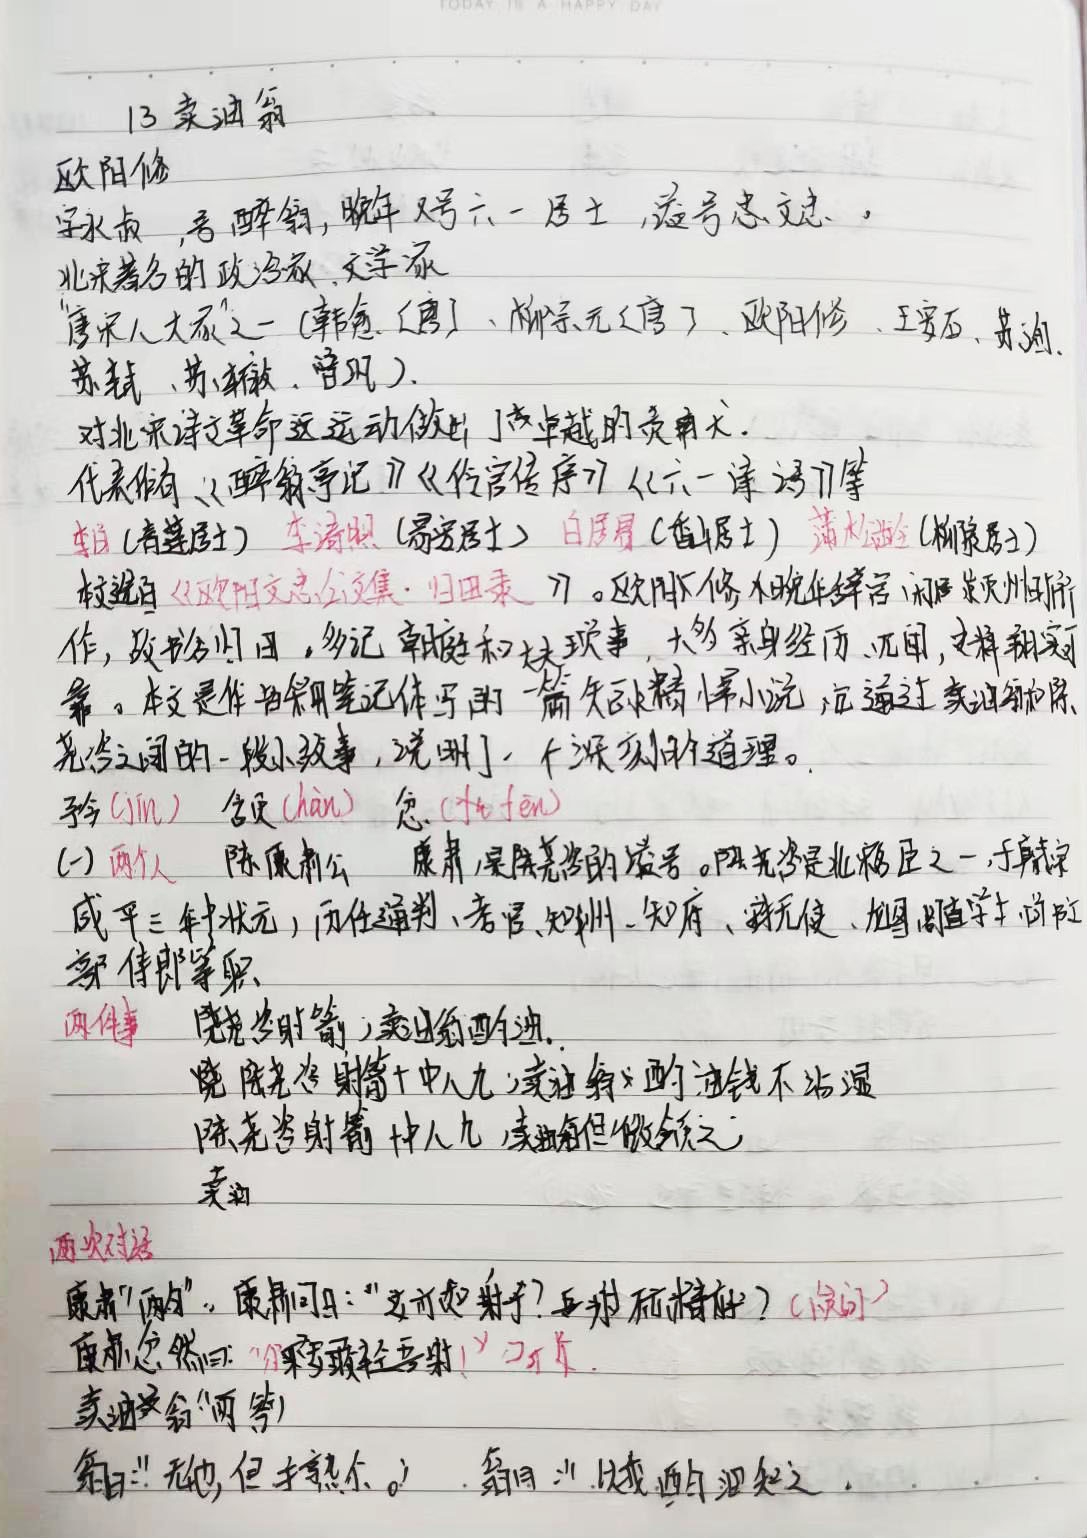 TODAY IS A HAPPY DAY
13 卖油翁
欧阳修
字永叔,号醉翁,晚年又号六一居士,谥号忠文忠。
北宋著名的政治家、文学家
"唐宋八大家"之一(韩愈〈唐〉、柳宗元〈唐〉、欧阳修、王安石、苏洵、
苏轼、苏辙、曾巩).
对北宋诗文革命运动做出了卓越的贡献.
代表作有《醉翁亭记》《伶官传序》《六一诗话》等
李白(青莲居士) 李清照(易安居士) 白居易(香山居士) 蒲松龄(柳泉居士)
本文选自《欧阳文忠公文集·归田录》。欧阳修晚年辞官闲居颍州时所
作,故书名归田。多记朝庭和士大夫琐事,大多亲身经历、见闻,史料翔实可
靠。本文是作者采用笔记体写的一篇短小精悍小说,它通过卖油翁和陈
尧咨之间的一段小故事,说明了一个深刻的道理。
矜(jīn) 颔(hàn) 忿(fèn)
(一)两个人 陈康肃公 康肃,是陈尧咨的谥号。陈尧咨是北宋名臣之一,于真宗
咸平三年中状元,历任通判、考官、知州、知府、安抚使、龙图阁直学士、尚书工
部侍郎等职、
两件事 陈尧咨射箭,卖油翁酌油.
陈尧咨射箭十中八九,卖油翁酌油钱不沾湿
陈尧咨射箭十中八九,卖油翁但微颔之;
卖油
两次对话
康肃"两问"。康肃问曰:"汝亦知射乎?吾射不亦精乎?
康肃忿然曰:"尔安敢轻吾射!"
卖油翁"两答"
翁曰:"无他,但手熟尔。" 翁曰:"以我酌油知之.